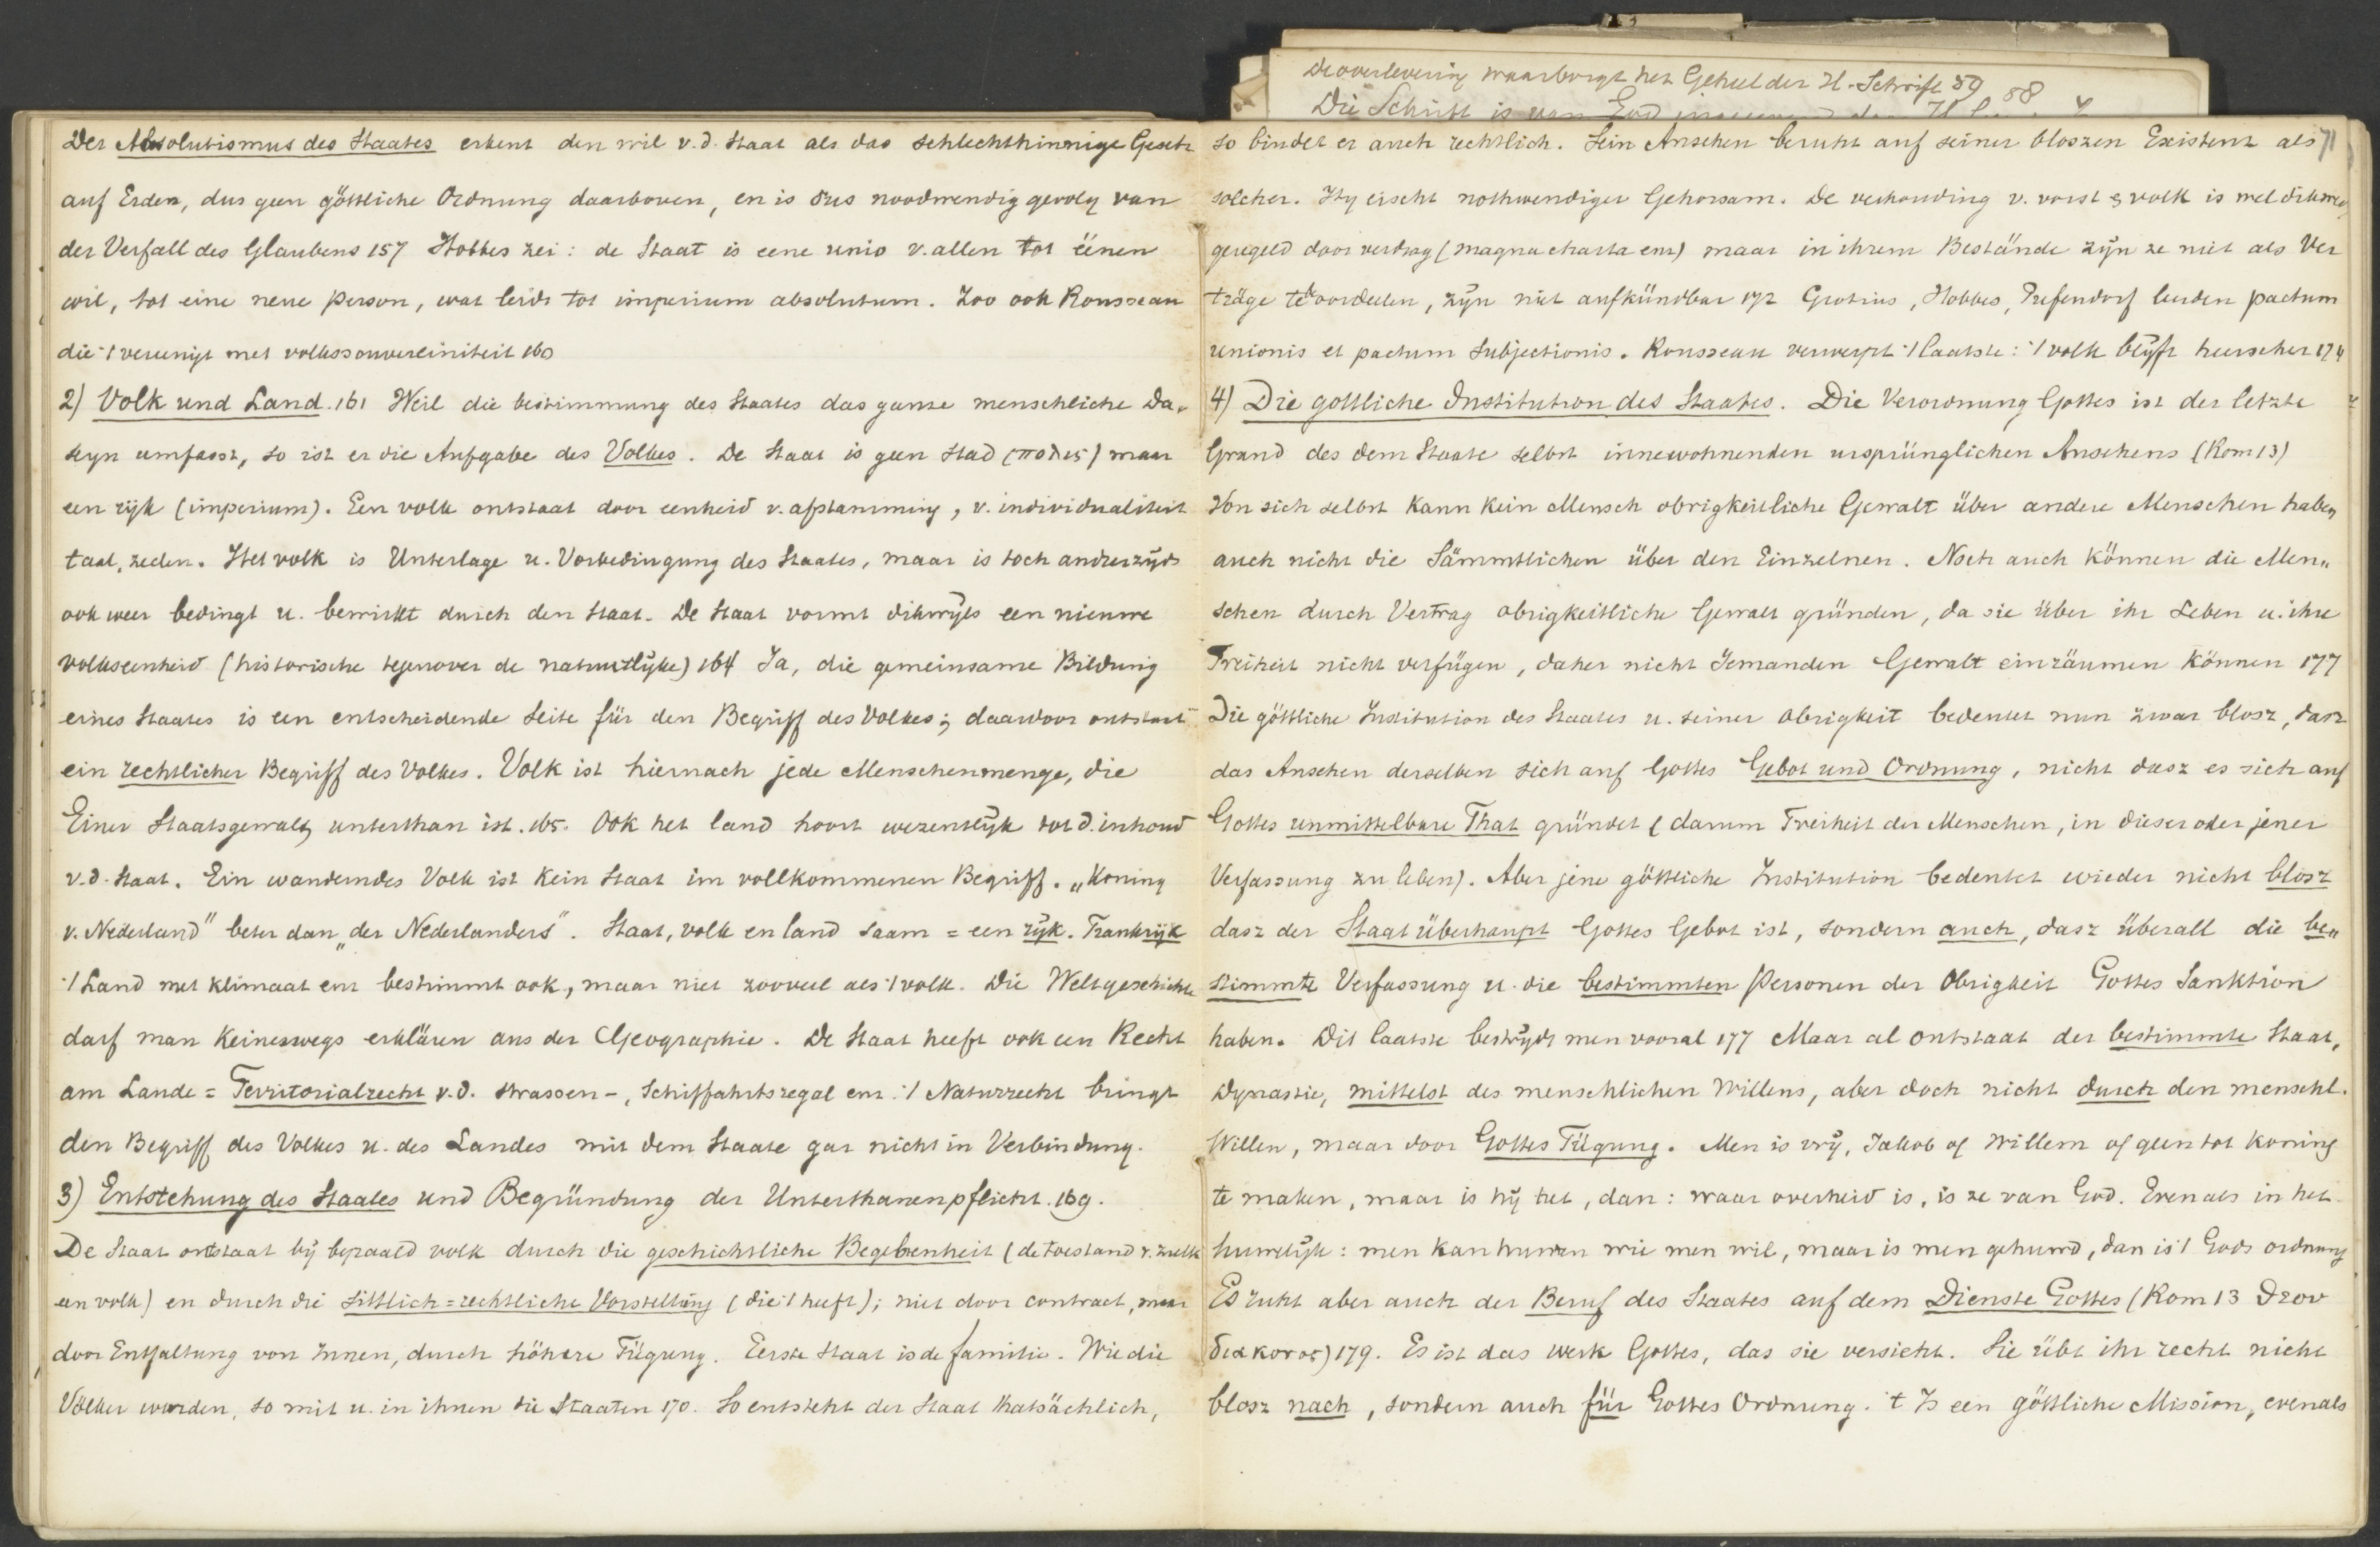 de overlevering waarborgt het Geheel der H. Schrift 59 88
Die Schrift is van God
Der Absolutismus des Staates erkent den wil v.d. Staat als das schlechthinnige Gesetz
auf Erden, dus geen göttliche Ordnung daarboven, en is dus noodwendig gevolg van
der Verfall des Glaubens 157 Hobbes zei: de Staat is eene unio v. allen tot éénen
wil, tot eine neue person, wat leidt tot imperium absolutum. Zoo ook Rousseau
die 't vereenigt met volkssouvereiniteit 160
2) Volk und Land. 161 Weil die bestimmung des Staates das ganze menschliche Da-
seyn umfasst, so ist er die Aufgabe des Volkes. De Staat is geen stad (πολις) maar
een rijk (imperium). Een volk ontstaat door eenheid v. afstamming, v. individualiteit
taal, zeden. Het volk is Unterlage u. Vorbedingung des Staates, maar is toch anderzijds
ook weer bedingt u. bewirkt durch den Staat. De Staat vormt dikwijls een nieuwe
volkseenheid (historische tegenover de natuurlijke) 164 Ja, die gemeinsame Bildung
eines Staates is een entscheidende Seite für den Begriff des Volkes; daardoor ontstaat
ein rechtlicher Begriff des Volkes. Volk ist hiernach jede Menschenmenge, die
Einer Staatsgewalt unterthan ist. 165. Ook het land hoort wezenlijk tot d. inhoud
v.d. Staat. Ein wanderndes Volk ist kein Staat im vollkommenen Begriff. „Koning
v. Nederland" beter dan „der Nederlanders". Staat, volk en land saam = een rijk. Frankrijk
't Land met klimaat enz bestimmt ook, maar niet zooveel als 't volk. Die Weltgeschichte
darf man keineswegs erklären aus der Geographie. De Staat heeft ook een Recht
am Lande = Territorialrecht v.d. strassen-, Schiffahrtsregal enz. 't Naturrecht bringt
den Begriff des Volkes u. des Landes mit dem Staate gar nicht in Verbindung.
3) Entstehung des Staates und Begründung der Unterthanenpflicht. 169.
De Staat ontstaat bij bepaald volk durch die geschichtliche Begebenheit (de toestand v. zulk
een volk) en durch die sittlich=rechtliche Vorstellung (die 't heeft); niet door contract, maar
door Entfaltung von Innen, durch höhere Fügung. Eerste Staat is de familie. Wie die
Völker wurden, so mit u. in ihnen die Staaten 170. So entsteht der Staat thatsächlich,
71
so bindet er auch rechtlich. Sein Ansehen beruht auf seiner bloszen Existenz als
solcher. Hij eischt nothwendiger Gehorsam. De verhouding v. vorst & volk is wel dikwerf
geregeld door verdrag (magna charta enz) maar in ihrem Bestände zijn ze niet als Ver
träge te beoordeelen, zijn niet aufkündbar 172 Grotius, Hobbes, Pufendorf leeren pactum
unionis et pactum subjectionis. Rousseau verwerpt 't laatste: 't volk blijft heerscher 174
4) Die gottliche Institution des Staates. Die Verordnung Gottes ist der letzte
Grund des dem Staate selbst innewohnenden ursprünglichen Ansehens (Rom 13)
Von sich selbst kann kein Mensch obrigkeitliche Gewalt über andere Menschen haben
auch nicht die Sämmtlichen über den Einzelnen. Noch auch können die Men„
schen durch Vertrag obrigkeitliche Gewalt gründen, da sie über ihr Leben u. ihre
Freiheit nicht verfügen, daher nicht Jemanden Gewalt einräumen können 177
Die göttliche Institution des Staates u. seiner obrigkeit bedeutet nun zwar blosz, dasz
das Ansehen derselben sich auf Gottes Gebot und Ordnung, nicht dasz es sich auf
Gottes unmittelbare That gründet (darum Freiheit der Menschen, in dieser oder jener
Verfassung zu leben). Aber jene göttliche Institution bedeutet wieder nicht blosz
dasz der Staat überhaupt Gottes Gebot ist, sondern auch, dasz überall die be„
stimmte Verfassung u. die bestimmten Personen der Obrigkeit Gottes Sanktion
haben. Dit laatste bestrijdt men vooral 177 Maar al ontstaat der bestimmte Staat,
Dynastie, mittelst des menschlichen Willens, aber doch nicht durch den menschl.
Willen, maar door Gottes Fügung. Men is vrij, Jakob of Willem of geen tot koning
te maken, maar is hij het, dan: waar overheid is, is ze van God. Evenals in het
huwelijk: men kan huwen wie men wil, maar is men gehuwd, dan is 't Gods ordnung
Es ruht aber auch der Beruf des Staates auf dem Dienste Gottes (Rom 13 θεου
διακονος) 179. Es ist das werk Gottes, das sie versieht. Sie übt ihr recht nicht
blosz nach, sondern auch für Gottes Ordnung. 't Is een göttliche Mission, evenals